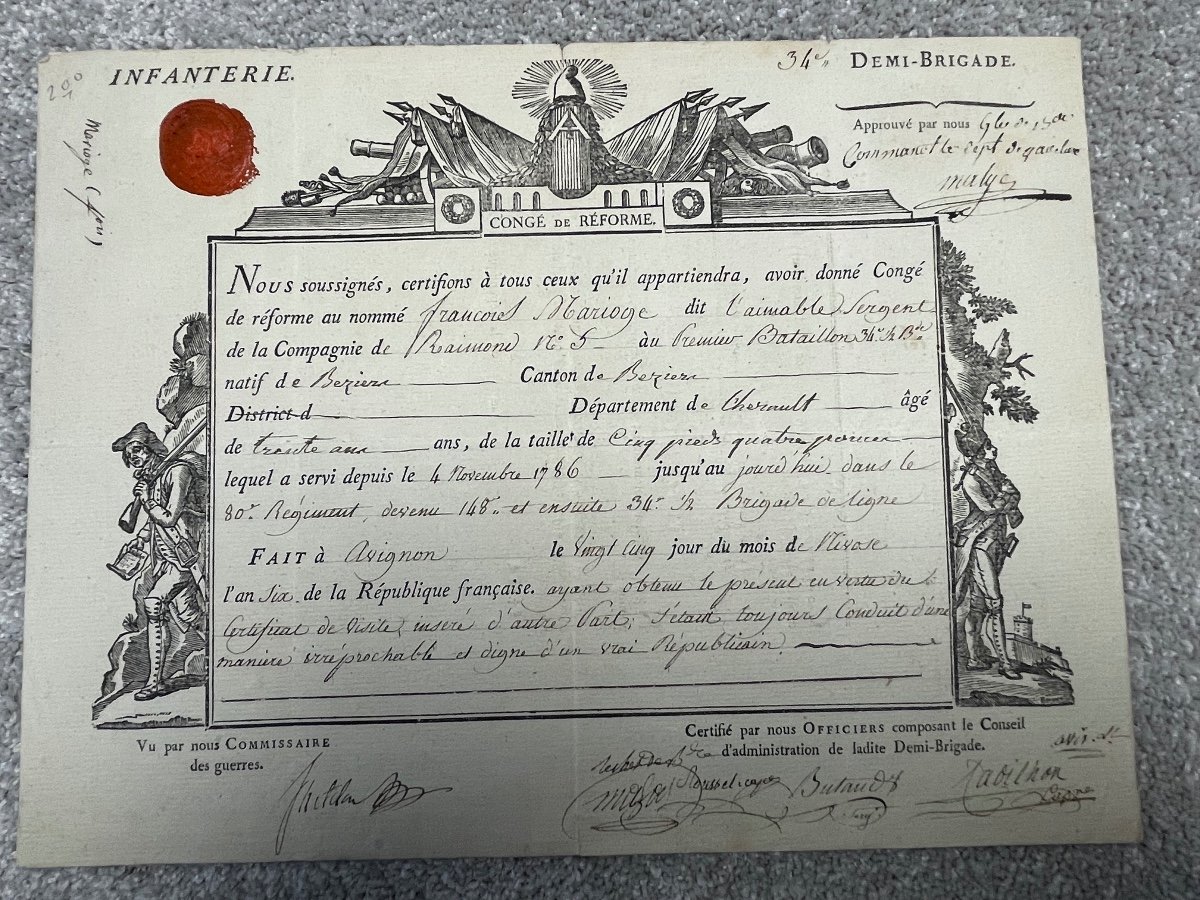 INFANTERIE.
34e. DEMI-BRIGADE.
200
Marioge (fois)
Approuvé par nous
Commandt le dépt de
malye
CONGÉ DE RÉFORME.
Nous soussignés, certifions à tous ceux qu'il appartiendra, avoir donné Congé
de réforme au nommé francois Marioge dit l'aimable Sergent
de la Compagnie de Raimond No. 5 au Premier Bataillon 34e. ½ Bde
natif de Beziers Canton de Beziers
District d Département de l'herault âgé
de trente ans ans, de la taille de Cinq pieds quatre pouces
lequel a servi depuis le 4 Novembre 1786 jusqu'au jourd'hui dans le
80e. Régiment, devenu 148e. et ensuite 34e. ½ Brigade de ligne
FAIT à Avignon le Vingt Cinq jour du mois de Nivose
l'an Six de la République française. ayant obtenu le présent en vertu du
Certificat de Visite, inséré d'autre Part; s'étant toujours Conduit d'une
manière irréprochable et digne d'un vrai Républicain
Vu par nous COMMISSAIRE
des guerres.
Certifié par nous OFFICIERS composant le Conseil
d'administration de ladite Demi-Brigade.